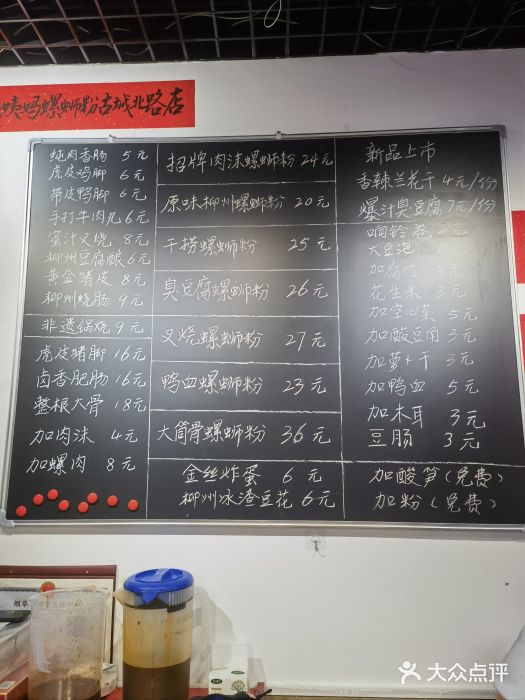 姨妈螺蛳粉古城北路店
纯肉香肠 5元
虎皮鸡脚 6元
带皮鸭脚 6元
手打牛肉丸 6元
蜜汁叉烧 8元
柳州豆腐酿 6元
黄金猪皮 8元
柳州烧肠 9元
非遗锅烧 9元
虎皮猪脚 16元
卤香肥肠 16元
整根大骨 18元
加肉沫 4元
加螺肉 8元
招牌肉沫螺蛳粉 24元
原味柳州螺蛳粉 20元
干捞螺蛳粉 25元
臭豆腐螺蛳粉 26元
叉烧螺蛳粉 27元
鸭血螺蛳粉 23元
大筒骨螺蛳粉 36元
金丝炸蛋 6元
柳州冰渣豆花 6元
新品上市
香辣兰花干 4元/份
爆汁臭豆腐 7元/份
响铃卷 2元
大豆泡 元
加腐竹 3元
花生米 3元
加空心菜 5元
加酸豆角 3元
加萝卜干 3元
加鸭血 5元
加木耳 3元
豆肠 3元
加酸笋(免费)
加粉(免费)
烟草
大众点评